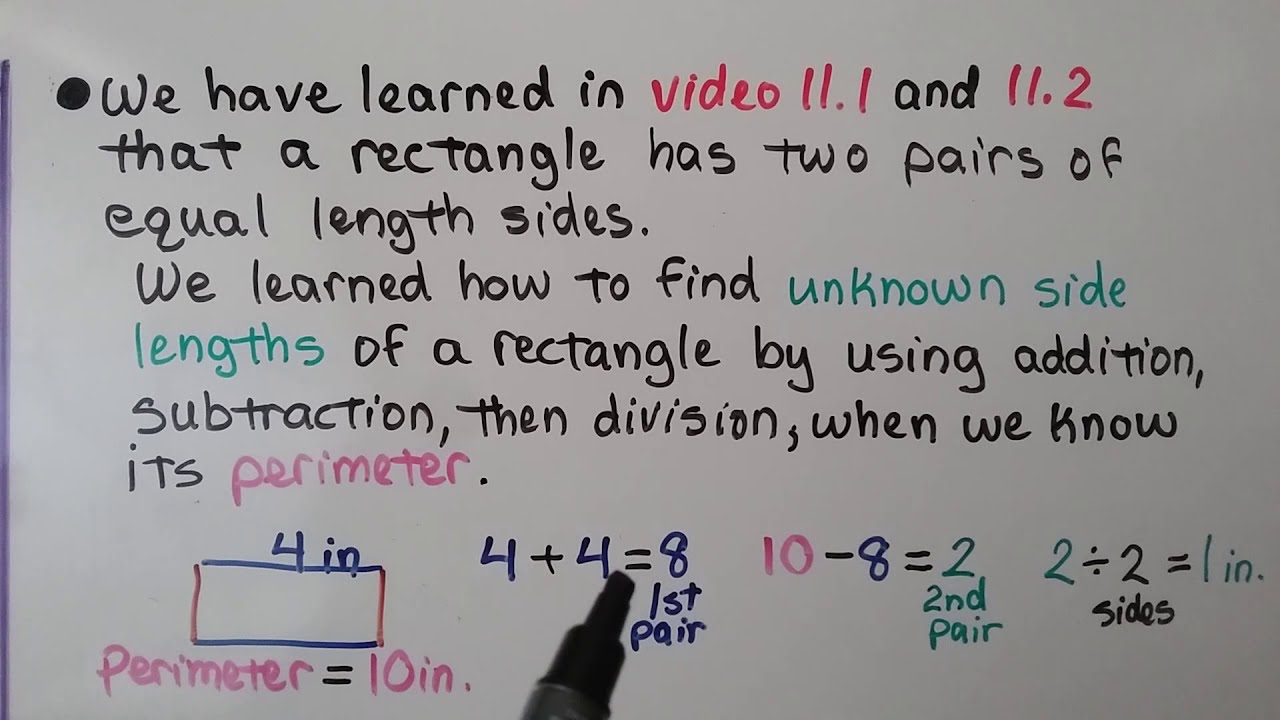 • We have learned in video 11.1 and 11.2
that a rectangle has two pairs of
equal length sides.
We learned how to find unknown side
lengths of a rectangle by using addition,
subtraction, then division, when we know
its perimeter.
4 in
4 + 4 = 8
1st
pair
10 - 8 = 2
2nd
pair
2 ÷ 2 = 1 in.
sides
Perimeter = 10 in.